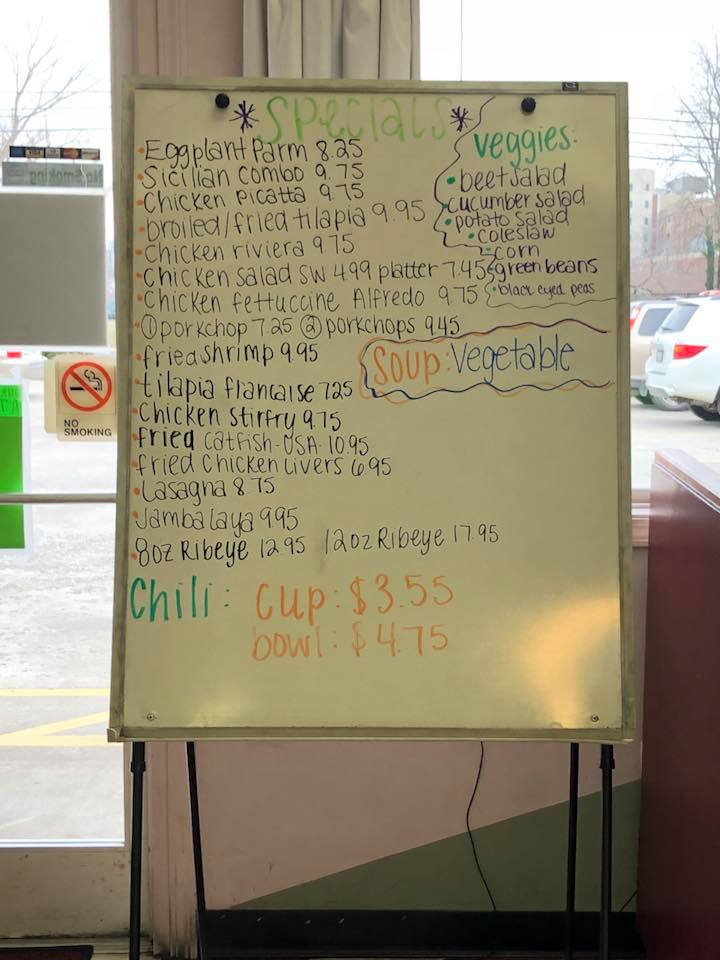 * Specials *
• Eggplant Parm 8.25
• Sicilian combo 9.75
• Chicken Picatta 9.75
• broiled/fried tilapia 9.95
• Chicken riviera 9.75
• Chicken salad SW 4.99 platter 7.45
• Chicken fettuccine Alfredo 9.75
• ① porkchop 7.25 ② porkchops 9.45
• fried shrimp 9.95
• tilapia francaise 7.25
• Chicken stirfry 9.75
• Fried catfish-USA 10.95
• fried chicken livers 6.95
• Lasagna 8.75
• Jambalaya 9.95
• 8oz Ribeye 12.95 12oz Ribeye 17.95
Chili: cup: $3.55
bowl: $4.75
veggies:
• beet salad
• cucumber salad
• potato salad
• coleslaw
• corn
• green beans
• black eyed peas
Soup: Vegetable
NO
SMOKING